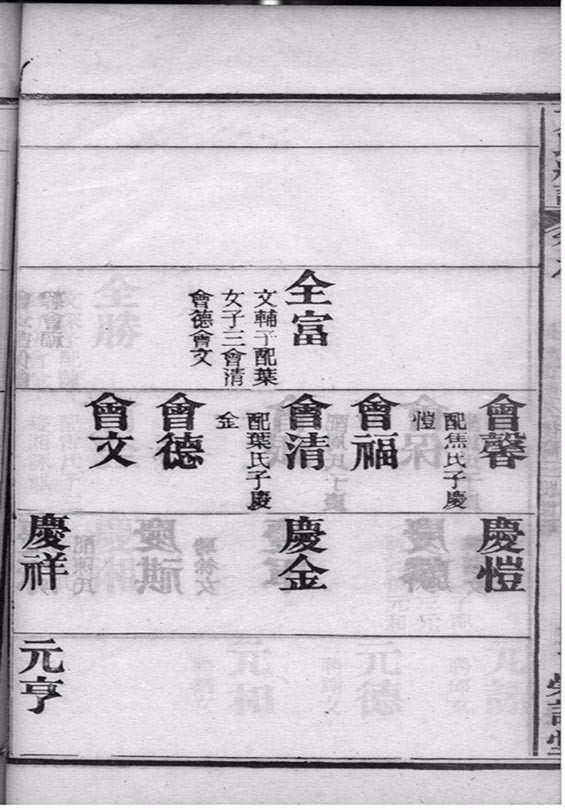 全富
文輔子配葉
女子三會清
會德會文
會馨
配焦氏子慶
愷
會福
會清
配葉氏子慶
金
會德
會文
慶愷
慶金
慶祥
元亨